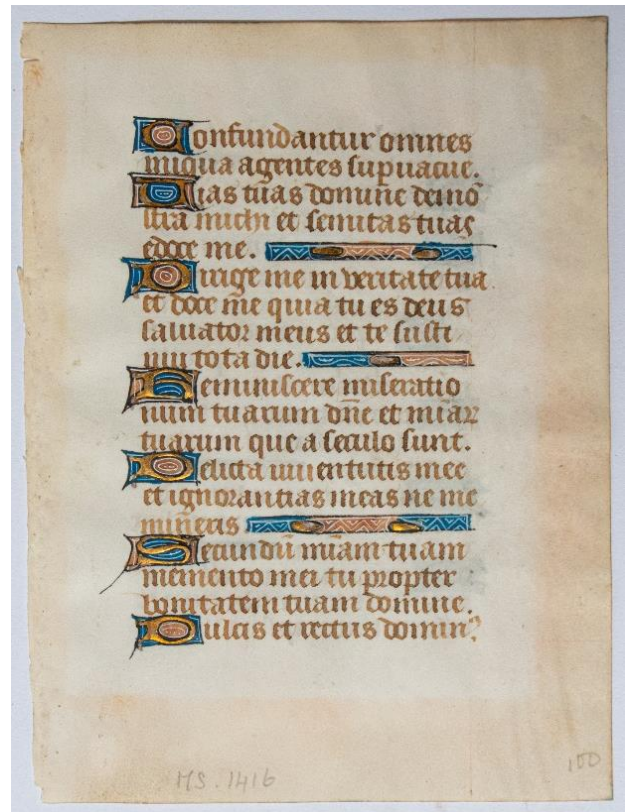 Confundantur omnes
iniqua agentes supuacue.
Uias tuas domine demō
stra michi et semitas tuas
edoce me.
Dirige me in veritate tua
et doce me quia tu es deus
saluator meus et te susti
nui tota die.
Reminiscere miseratio
num tuarum dn̄e et miāꝝ
tuarum que a seculo sunt.
Delicta iuuentutis mee
et ignorantias meas ne me
mineris
Secundū miām tuam
memento mei tu propter
bonitatem tuam domine.
Dulcis et rectus dominꝰ
MS. 1416
100